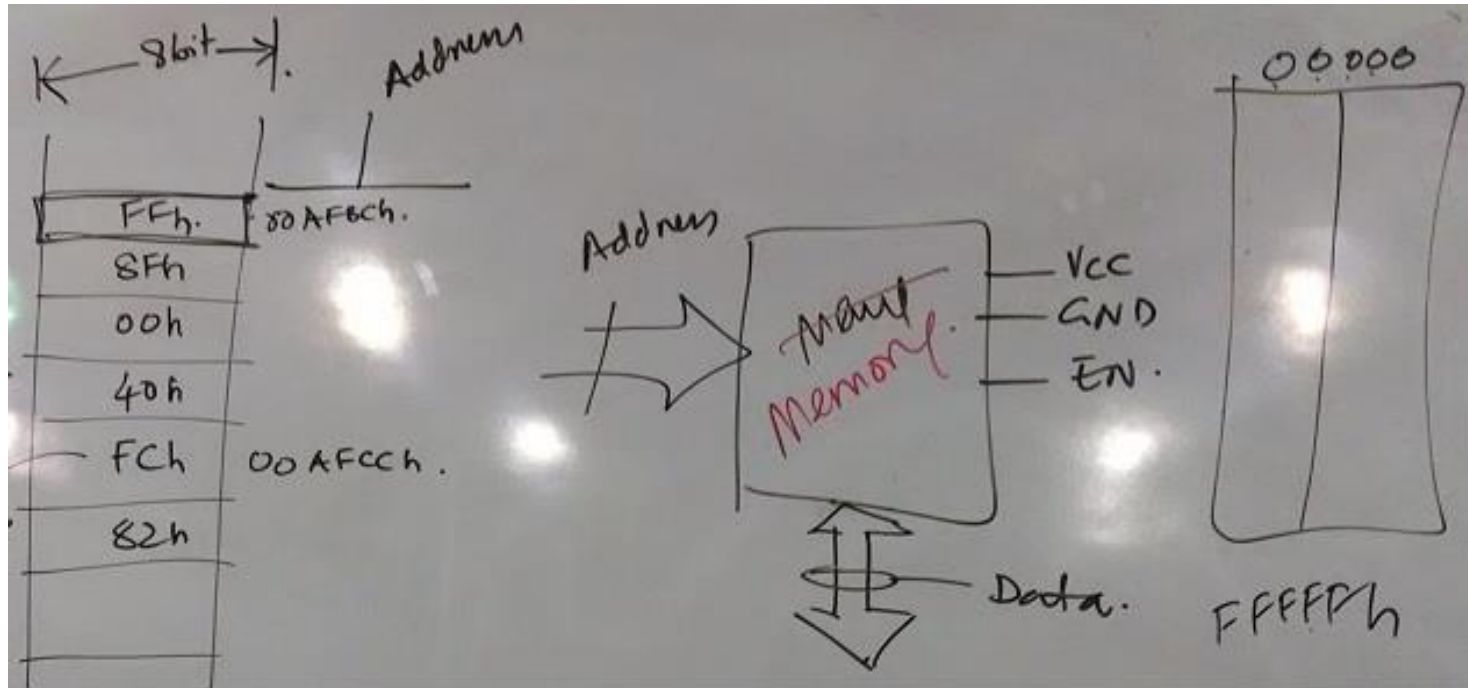 8bit
Address
FFh. 00AFBCh.
8Fh
00h
40h
FCh 00AFCCh.
82h
Address
Memory.
VCC
GND
EN.
Data.
00000
FFFFFh